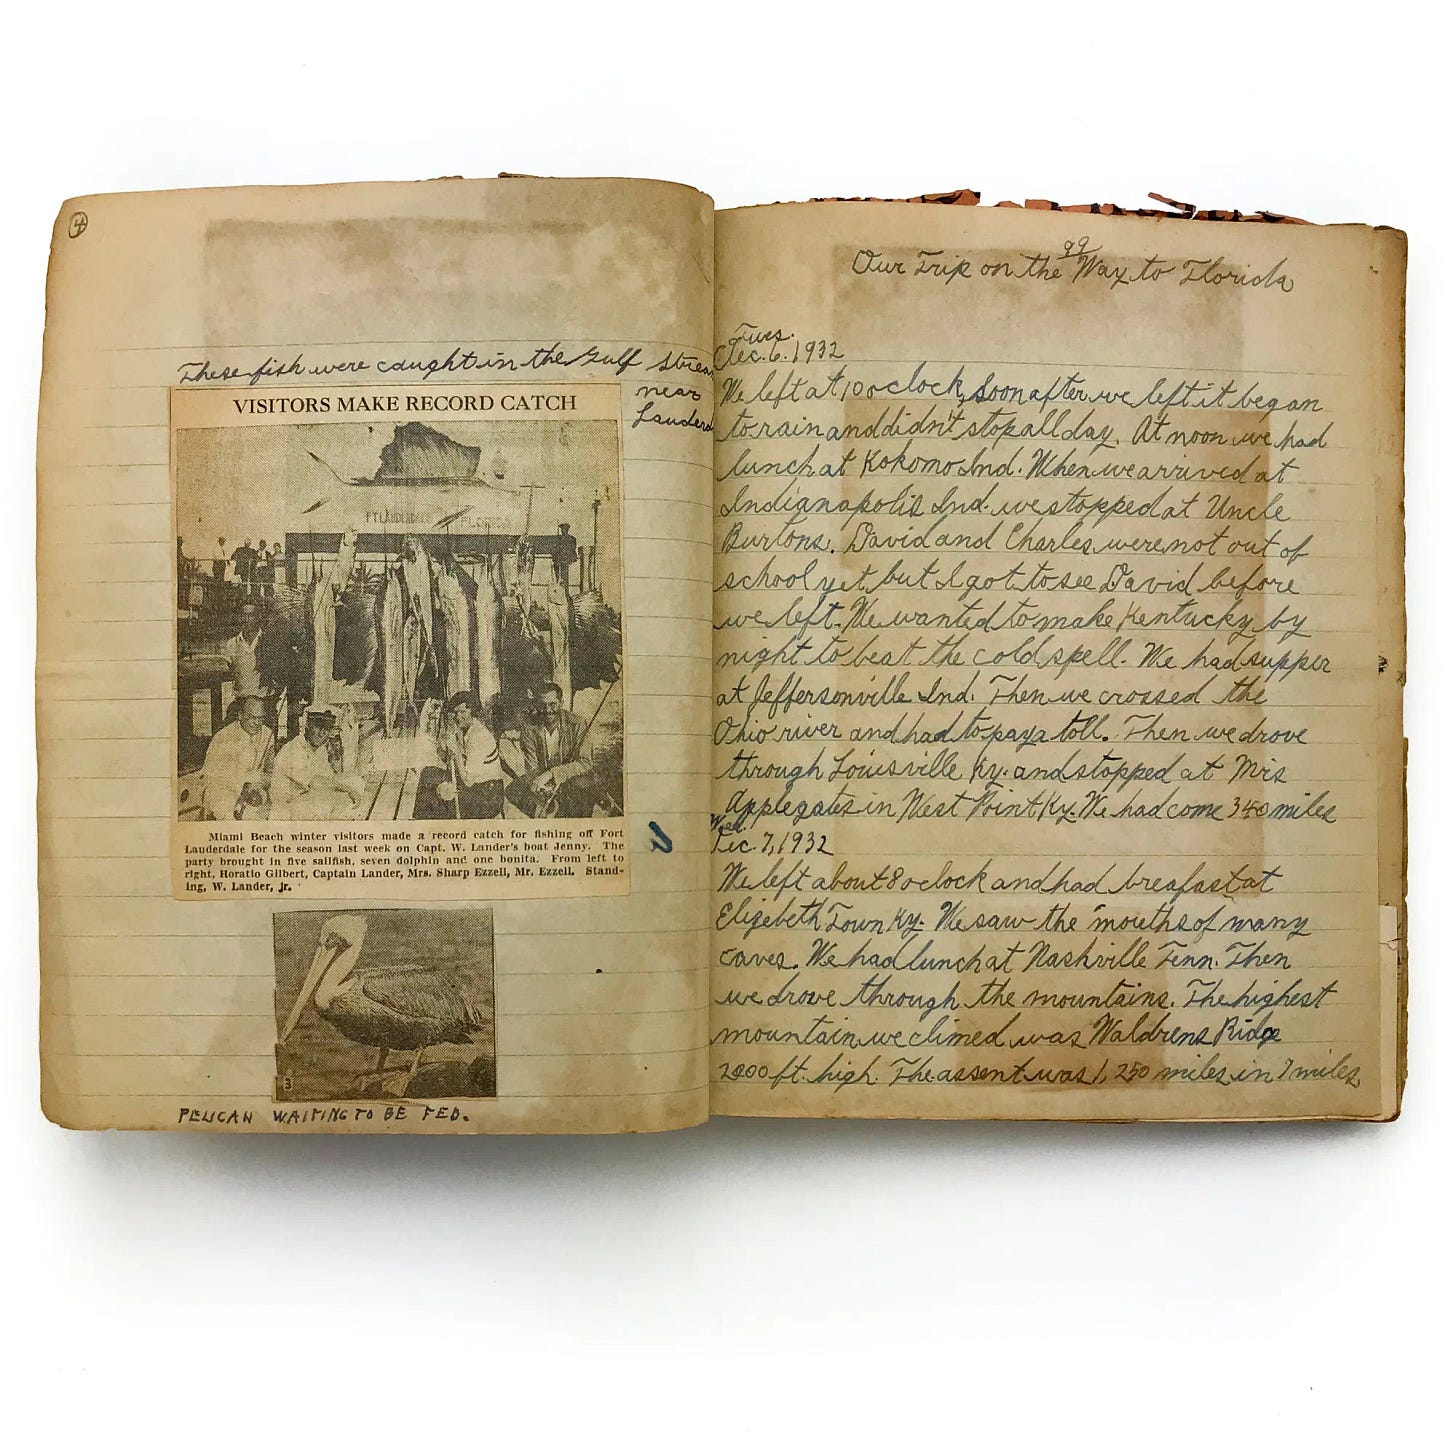 4
These fish were caught in the Gulf Strea
near
Lauderd
VISITORS MAKE RECORD CATCH
FT. LAUDERDALE FLORIDA
Miami Beach winter visitors made a record catch for fishing off Fort
Lauderdale for the season last week on Capt. W. Lander's boat Jenny. The
party brought in five sailfish, seven dolphin and one bonita. From left to
right, Horatio Gilbert, Captain Lander, Mrs. Sharp Ezzell, Mr. Ezzell. Stand-
ing, W. Lander, jr.
3
PELICAN WAITING TO BE FED.
Our Trip on the Way to Florida
Tues.
Dec. 6. 1932
We left at 10 o clock, Soon after we left it began
to rain and didn't stop all day. At noon we had
lunch at Kokomo Ind. When we arrived at
Indianapolis Ind. we stopped at Uncle
Burtons. David and Charles were not out of
school yet but I got to see David before
we left. We wanted to make Kentucky by
night to beat the cold spell. We had supper
at Jeffersonville Ind. Then we crossed the
Ohio river and had to pay a toll. Then we drove
through Louisville Ky. and stopped at Mrs
Applegates in West Point Ky. We had come 340 miles
Wed.
Dec. 7, 1932
We left about 8 o clock and had breafast at
Elizebeth Town Ky. We saw the mouths of many
caves. We had lunch at Nashville Tenn. Then
we drove through the mountains. The highest
mountain we climed was Waldrens Ridge
2000 ft. high. The assent was 1,250 miles in 7 miles